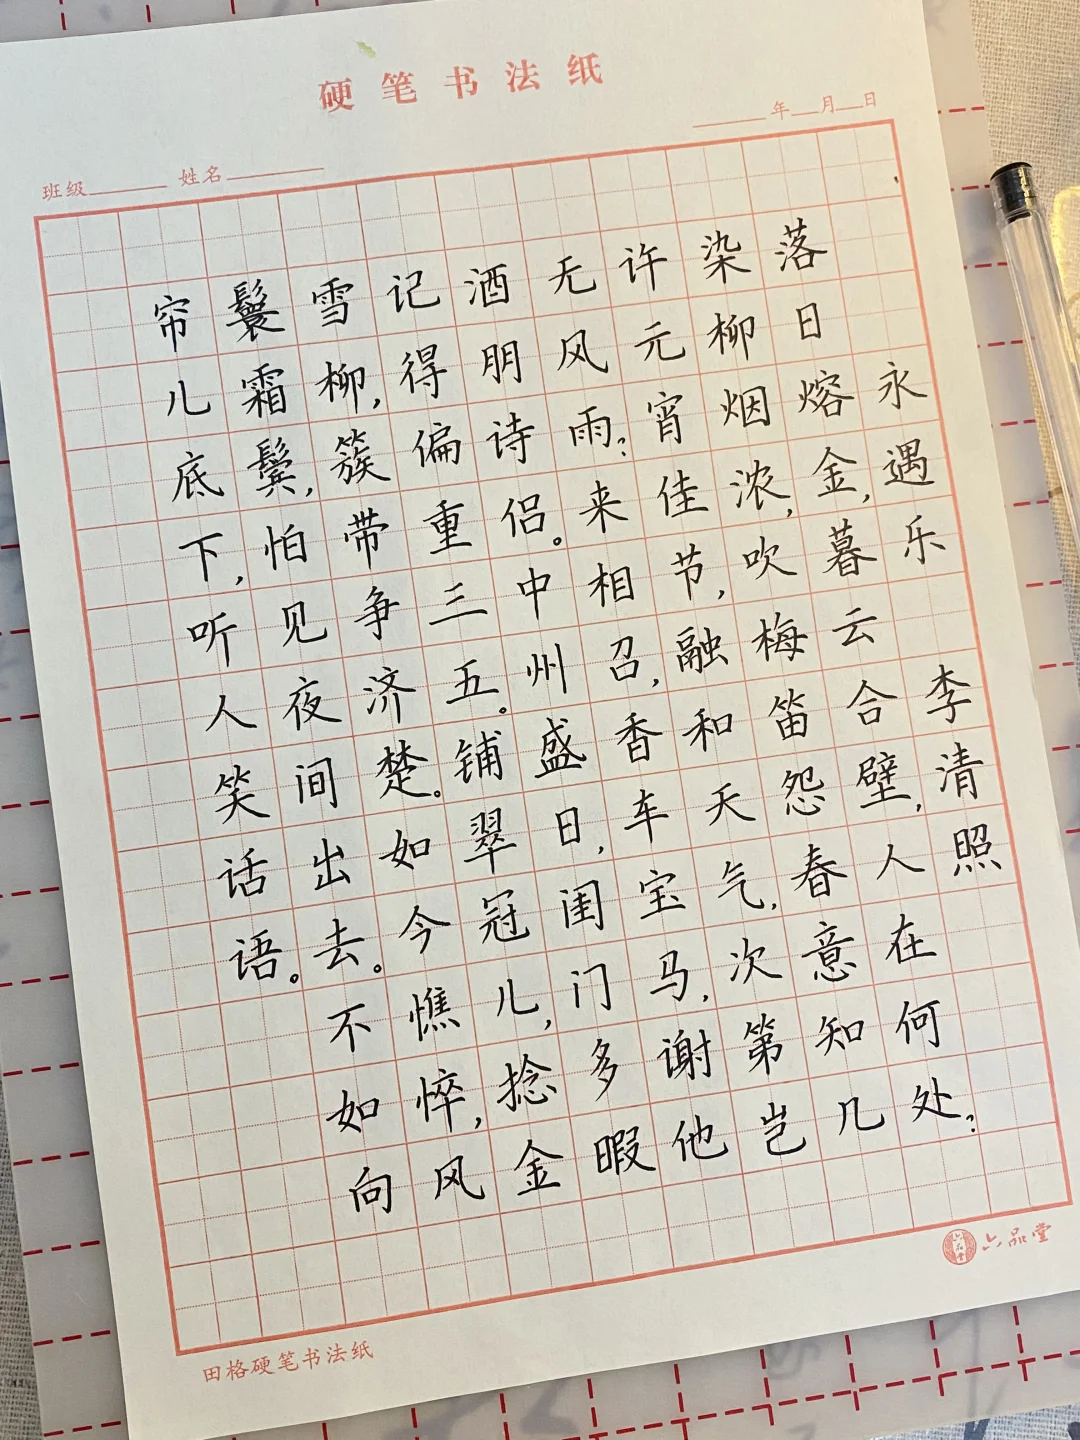 硬笔书法纸
年 月 日
班级 姓名
永遇乐 李清照
落日熔金,暮云合壁,人在何处?
染柳烟浓,吹梅笛怨,春意知几
许元宵佳节,融和天气,次第岂
无风雨?来相召,香车宝马,谢他
酒朋诗侣。中州盛日,闺门多暇
记得偏重三五。铺翠冠儿,捻金
雪柳,簇带争济楚。如今憔悴,风
鬟霜鬓,怕见夜间出去。不如向
帘儿底下,听人笑话语。
六品堂
六品堂
田格硬笔书法纸